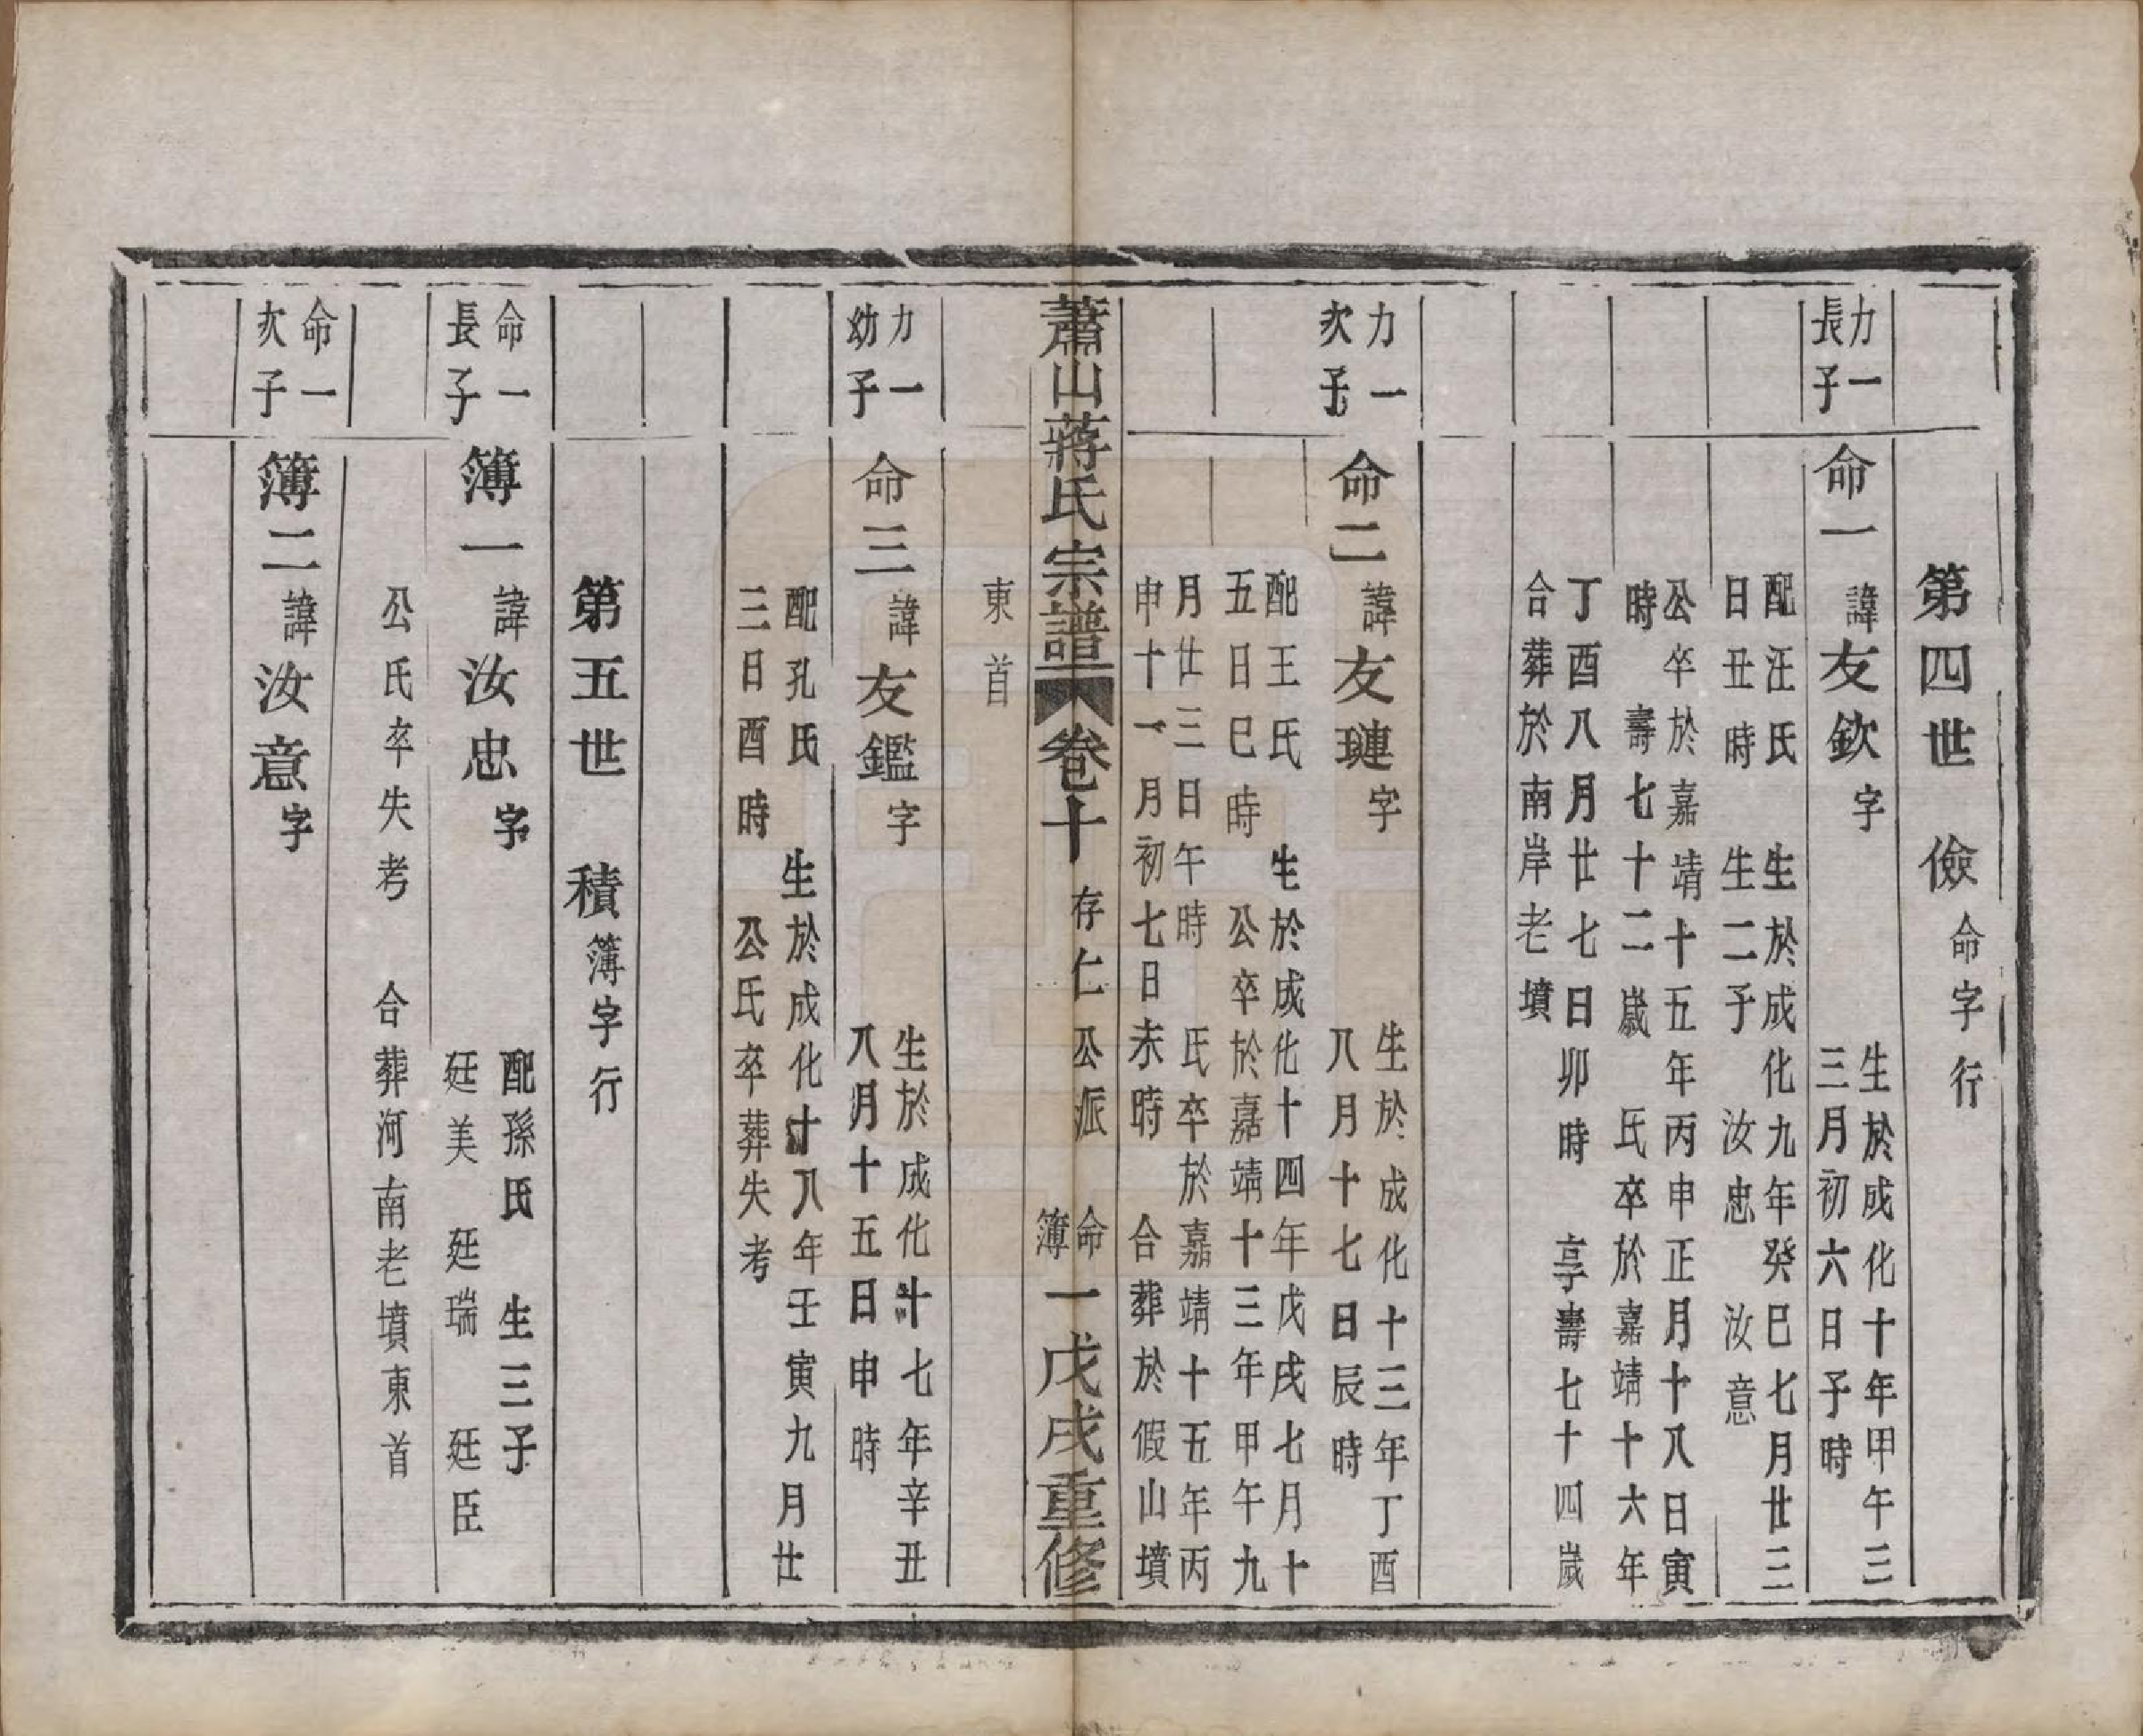 第四世　儉命字行
力一
長子
命一諱友欽字
生於成化十年甲午三
三月初六日子時
配汪氏　生於成化九年癸巳七月廿三
日丑時　生二子　汝忠　汝意
公卒於嘉靖十五年丙申正月十八日寅
時　壽七十二歲　氏卒於嘉靖十六年
丁酉八月廿七日卯時　享壽七十四歲
合葬於南岸老墳
力一
次子
命二諱友璉字
生於成化十三年丁酉
八月十七日辰時
配王氏　生於成化十四年戊戌七月十
五日巳時　公卒於嘉靖十三年甲午九
月廿三日午時　氏卒於嘉靖十五年丙
申十一月初七日未時　合葬於假山墳
蕭山蔣氏宗譜　卷十　存仁公派　命簿　一　戊戌重修
東首
力一
幼子
命三諱友鑑字
生於成化十七年辛丑
八月十五日申時
配孔氏　生於成化十八年壬寅九月廿
三日酉時　公氏卒葬失考
第五世　積簿字行
命一
長子
簿一諱汝忠字
配孫氏　生三子
廷美　廷瑞　廷臣
公氏卒失考　合葬河南老墳東首
命一
次子
簿二諱汝意字